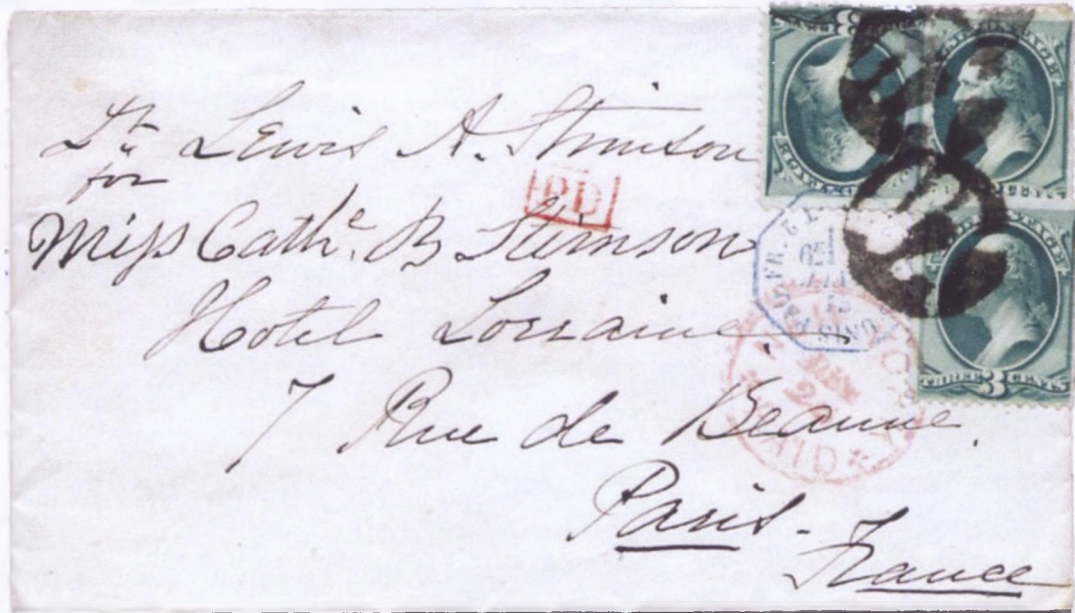 Dr. Lewis A. Stimson
for
Miss Cathe. B Stimson
Hotel Lorraine.
7 Rue de Beaune.
Paris.
France
PD
THREE 3 CENTS
NEW YORK
PAID